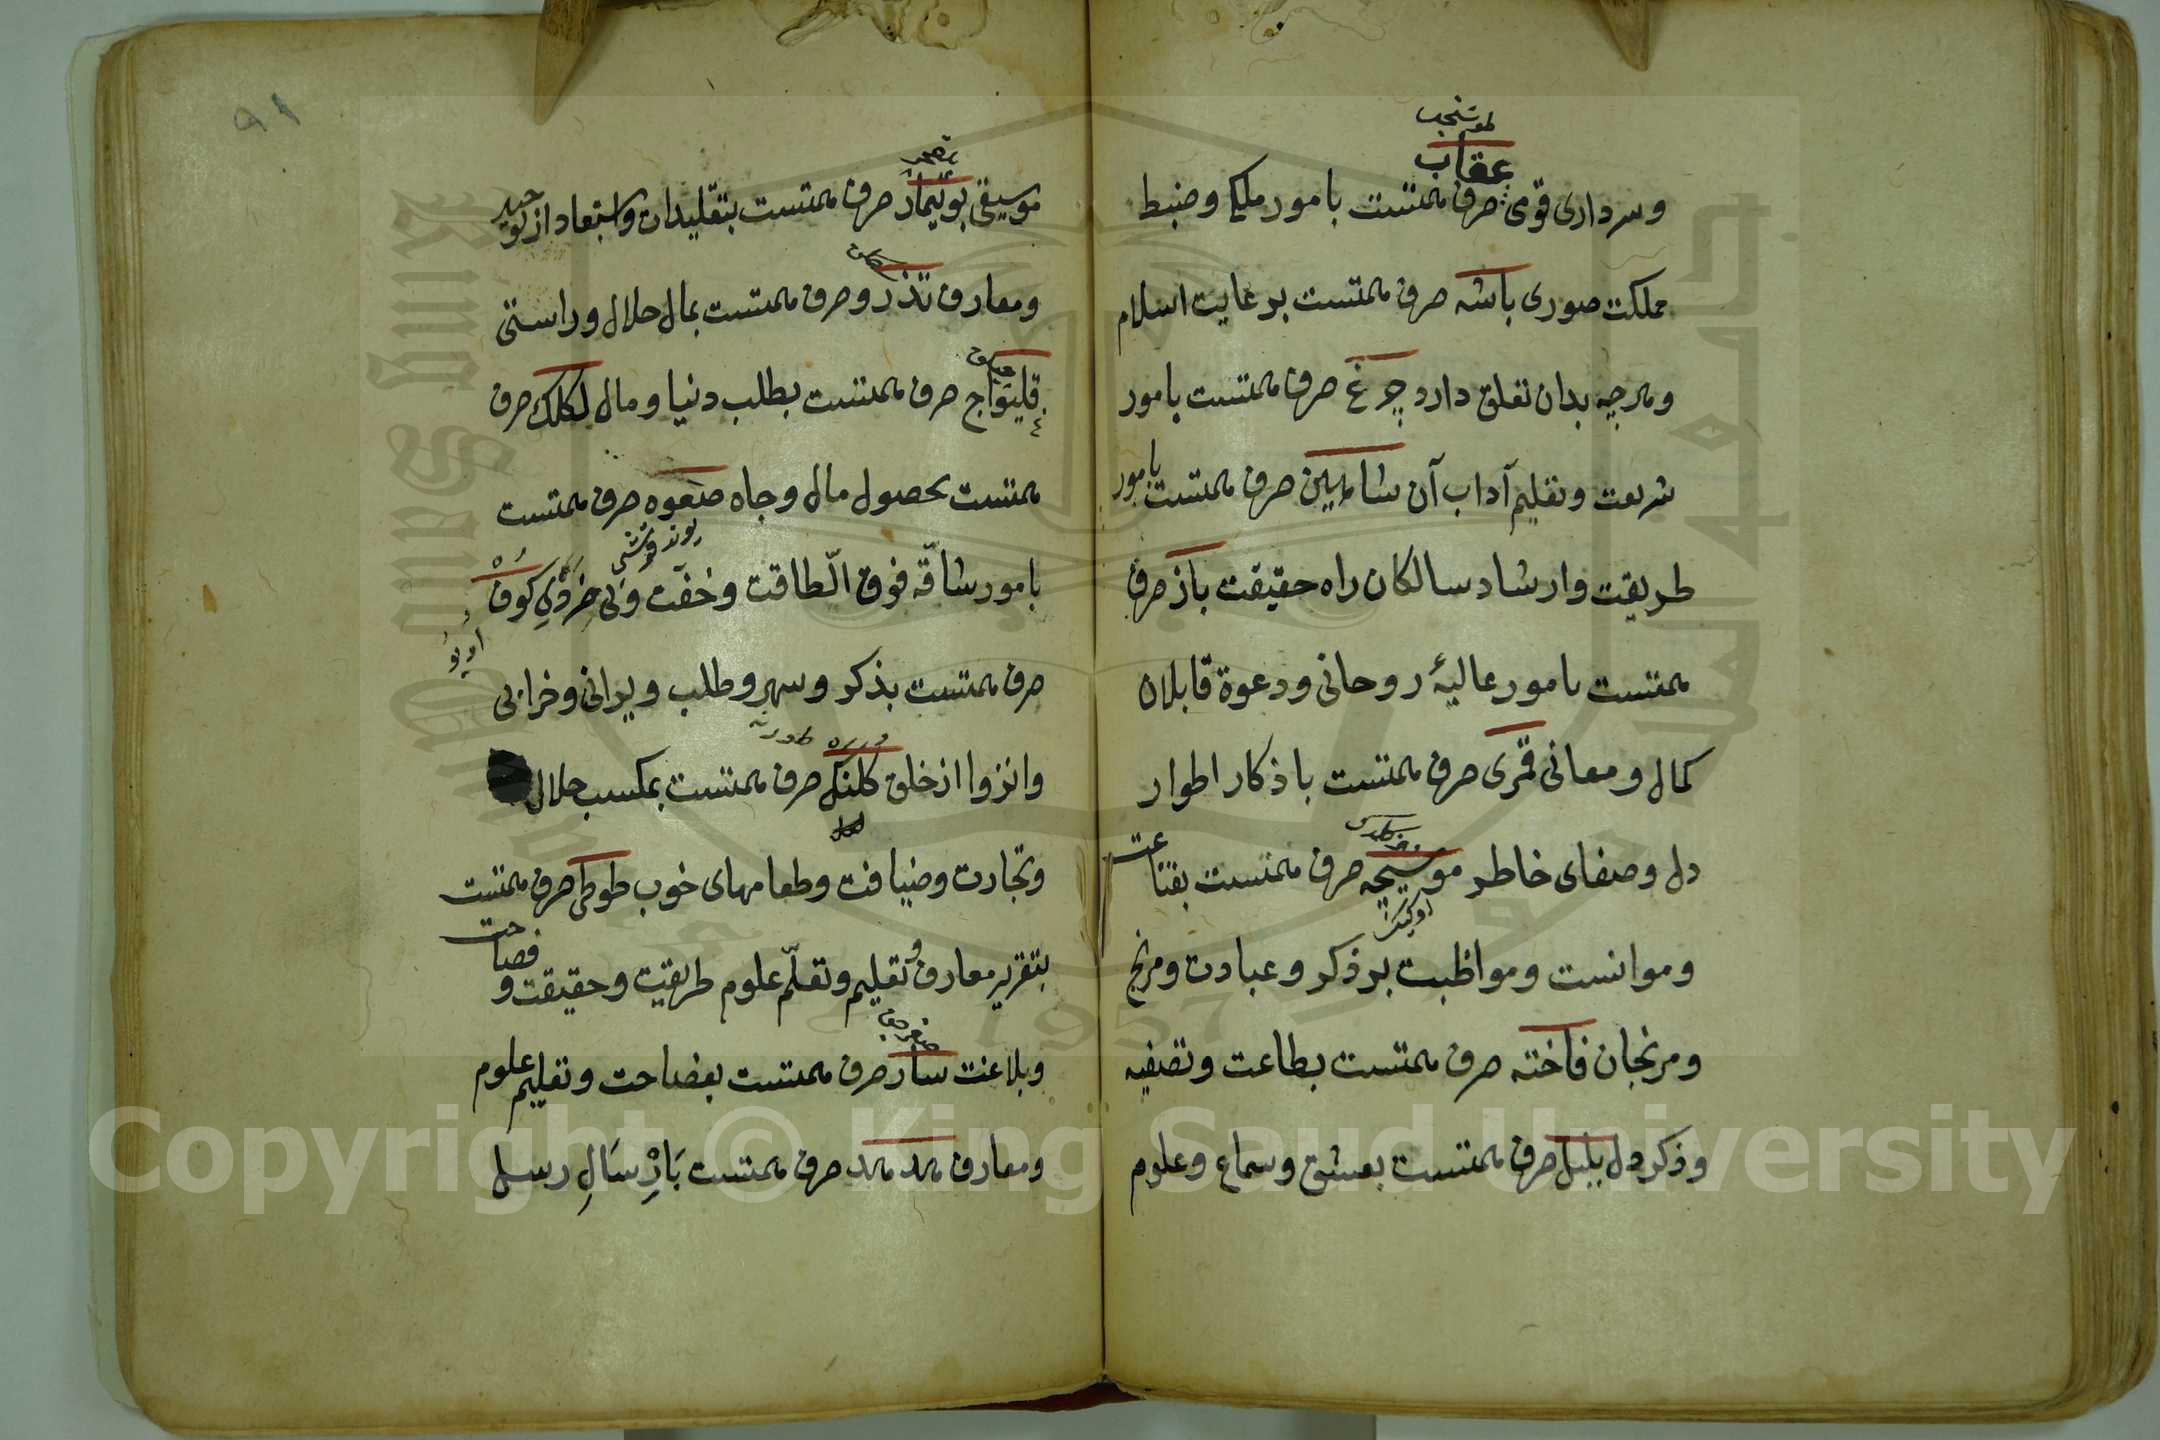 عقاب
وسرداری قومی صرف همتست بامور ملکی وضبط
مملکت صوری باشه صرف همتست برعایت اسلام
وهرچه بدان تعلق دارد چرغ صرف همتست بامور
شریعت وتعلیم آداب آن شاهین صرف همتست بامور
طریقت وارشاد سالکان راه حقیقت باز صرف
همتست بامور عالیۀ روحانی ودعوة قابلان
کمال ومعانی قمری صرف همتست باذکار اطوار
دل وصفای خاطر موسیچه صرف همتست بقناعت
وموانست ومواظبت بر ذکر وعبادت ومرنج
ومرنجان فاخته صرف همتست بطاعت وتصفیه
وذکر دل بلبل صرف همتست بعشق وسماع وعلوم
٩١
موسیقی بوتیمار صرف همتست بتقلیدان واستبعاد از توحید
ومعارف تذرو صرف همتست بمال حلال وراستی
قلیواج صرف همتست بطلب دنیا ومال لکلک صرف
همتست بحصول مال وجاه صعوه صرف همتست
بامور شاقّه فوق الطاقت وخفّت وبی خردی کوف
صرف همتست بذکر وسهر وطلب ویرانی وخرابی
وانزوا از خلق کلنک صرف همتست بمکسب حلال
وتجارت وضیافت وطعامهای خوب طوطی صرف همتست
بتقریر معارف وتعلیم وتعلّم علوم طریقت وحقیقت وفصاحت
وبلاغت سار صرف همتست بفصاحت وتعلیم علوم
ومعارف هدهد صرف همتست بَارْسَالِ رسل
Copyright © King Saud University
King Saud University
جامعة الملك سعود
1957